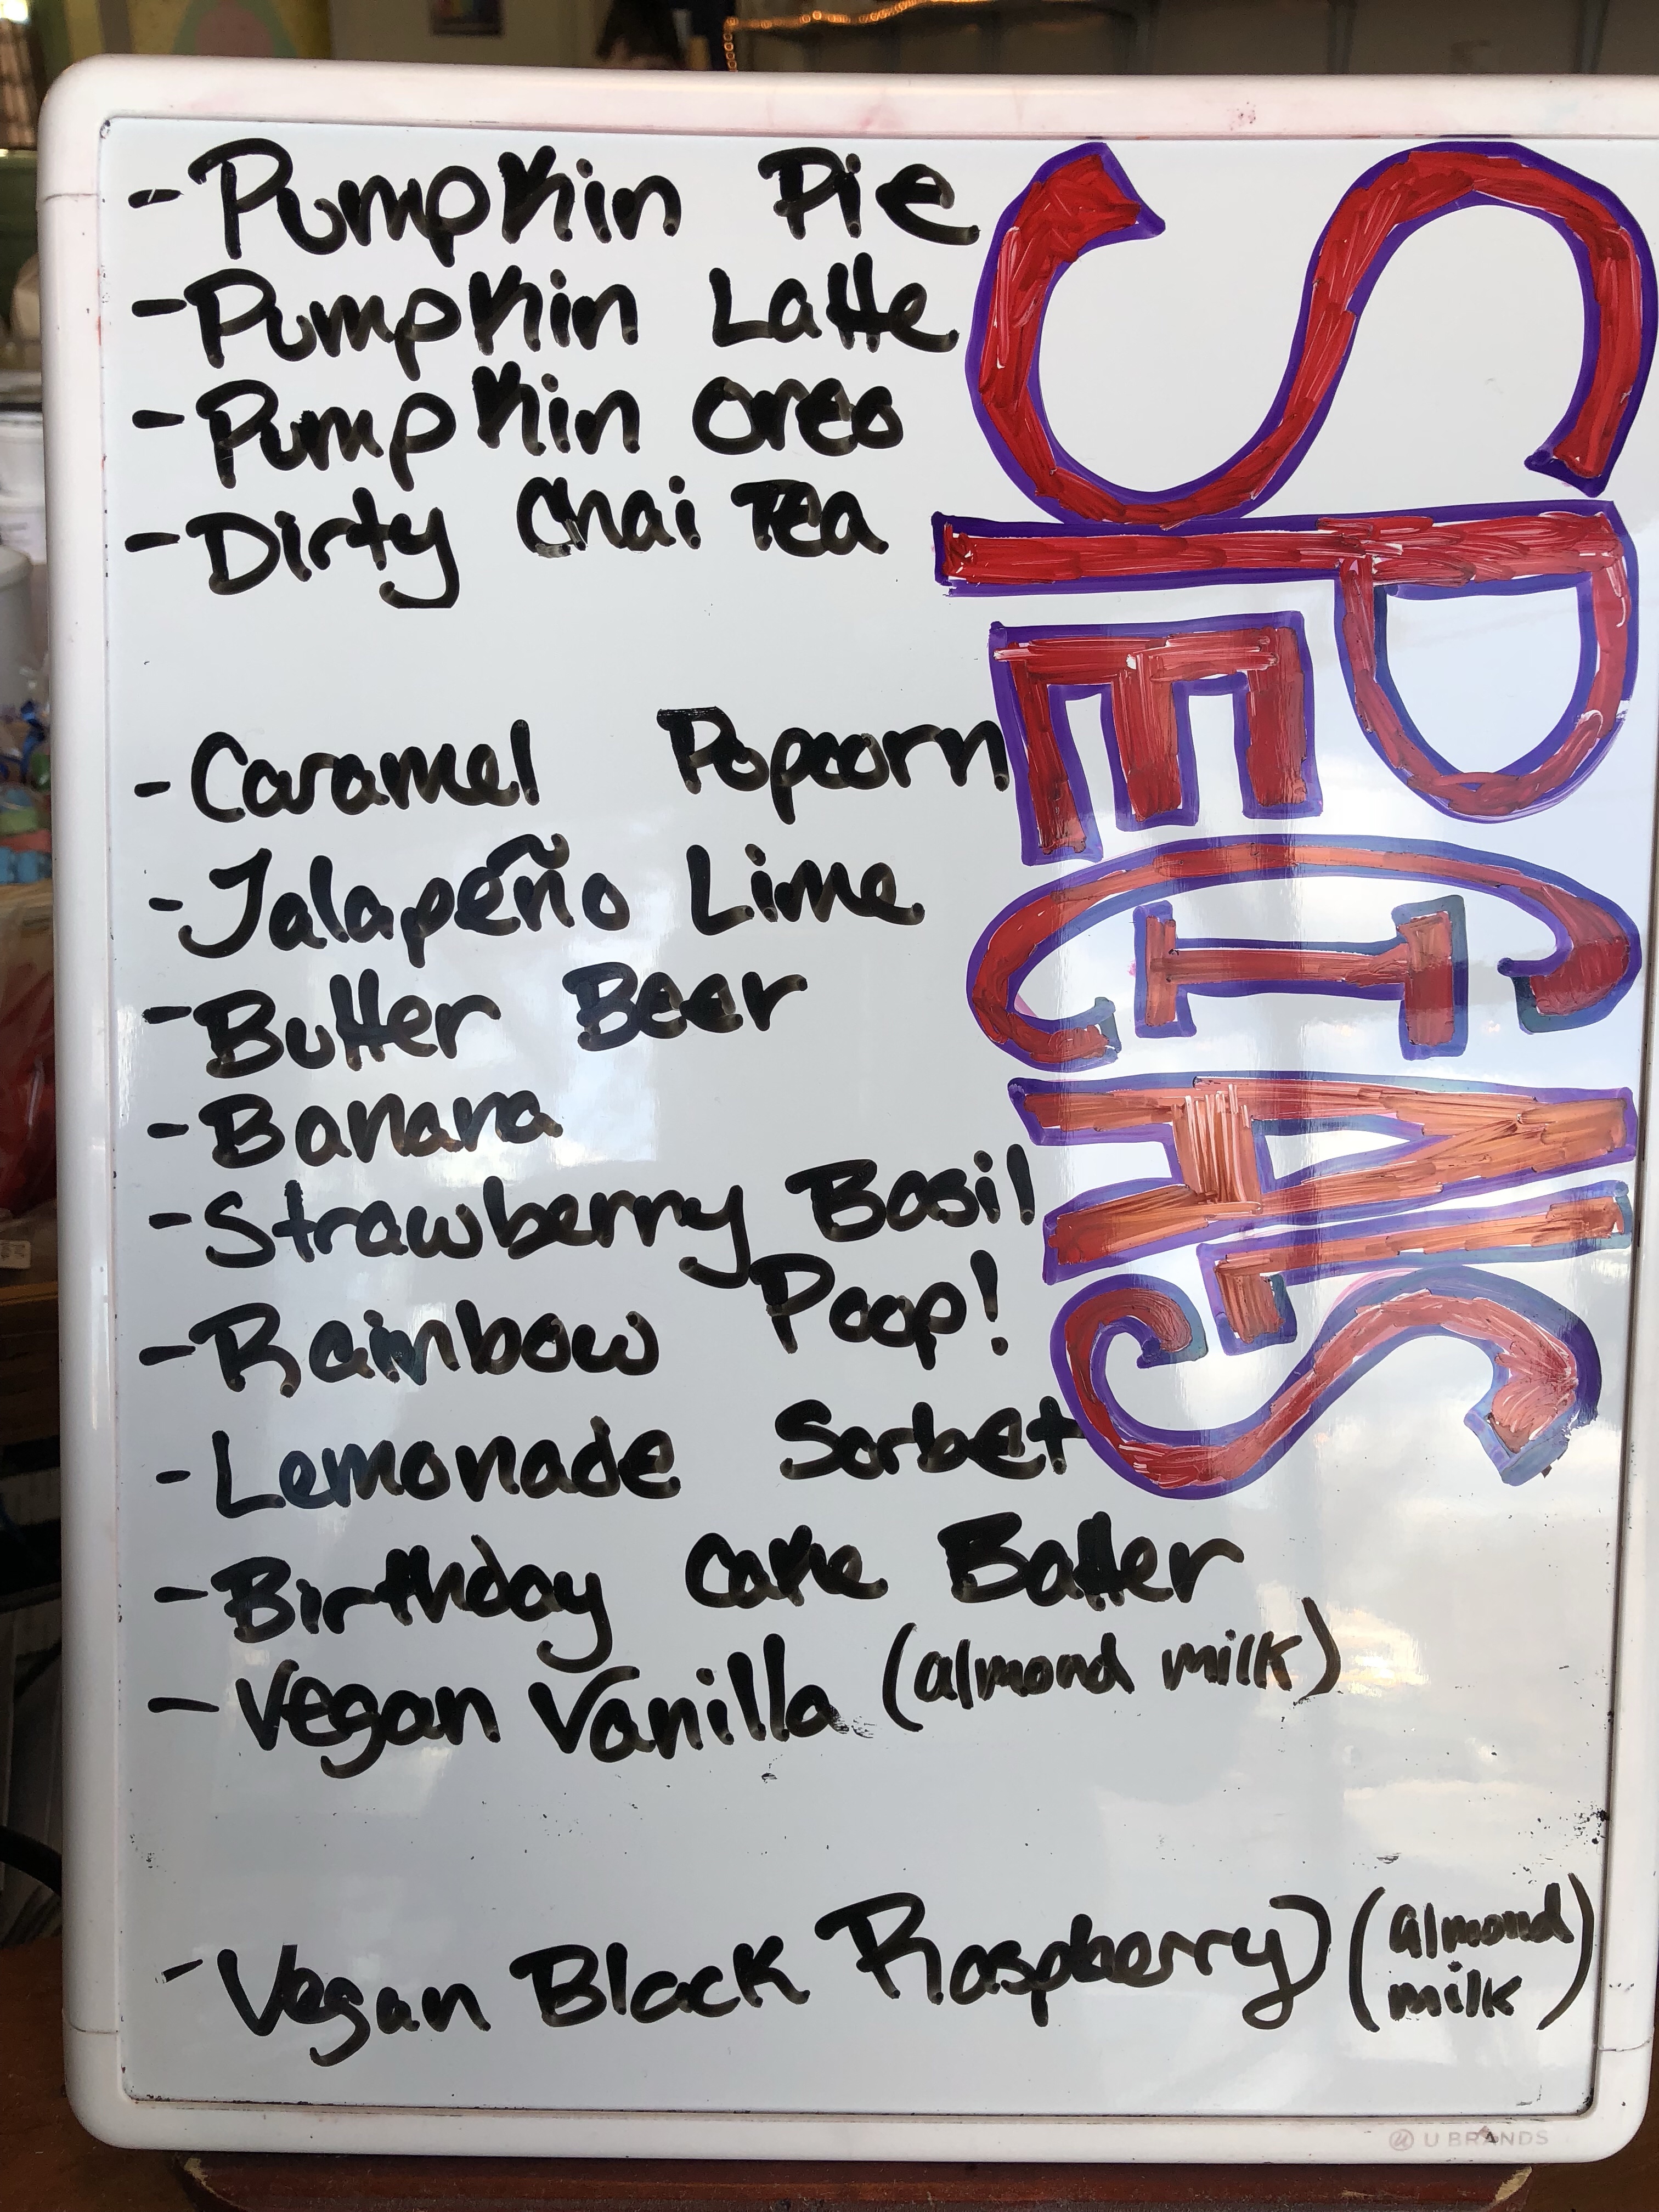 - Pumpkin Pie
- Pumpkin Latte
- Pumpkin Oreo
- Dirty Chai Tea
- Caramel Popcorn
- Jalapeño Lime
- Butter Beer
- Banana
- Strawberry Basil
- Rainbow Poop!
- Lemonade Sorbet
- Birthday Cake Batter
- Vegan Vanilla (almond milk)
- Vegan Black Raspberry (almond
milk)
SPECIALS
U BRANDS